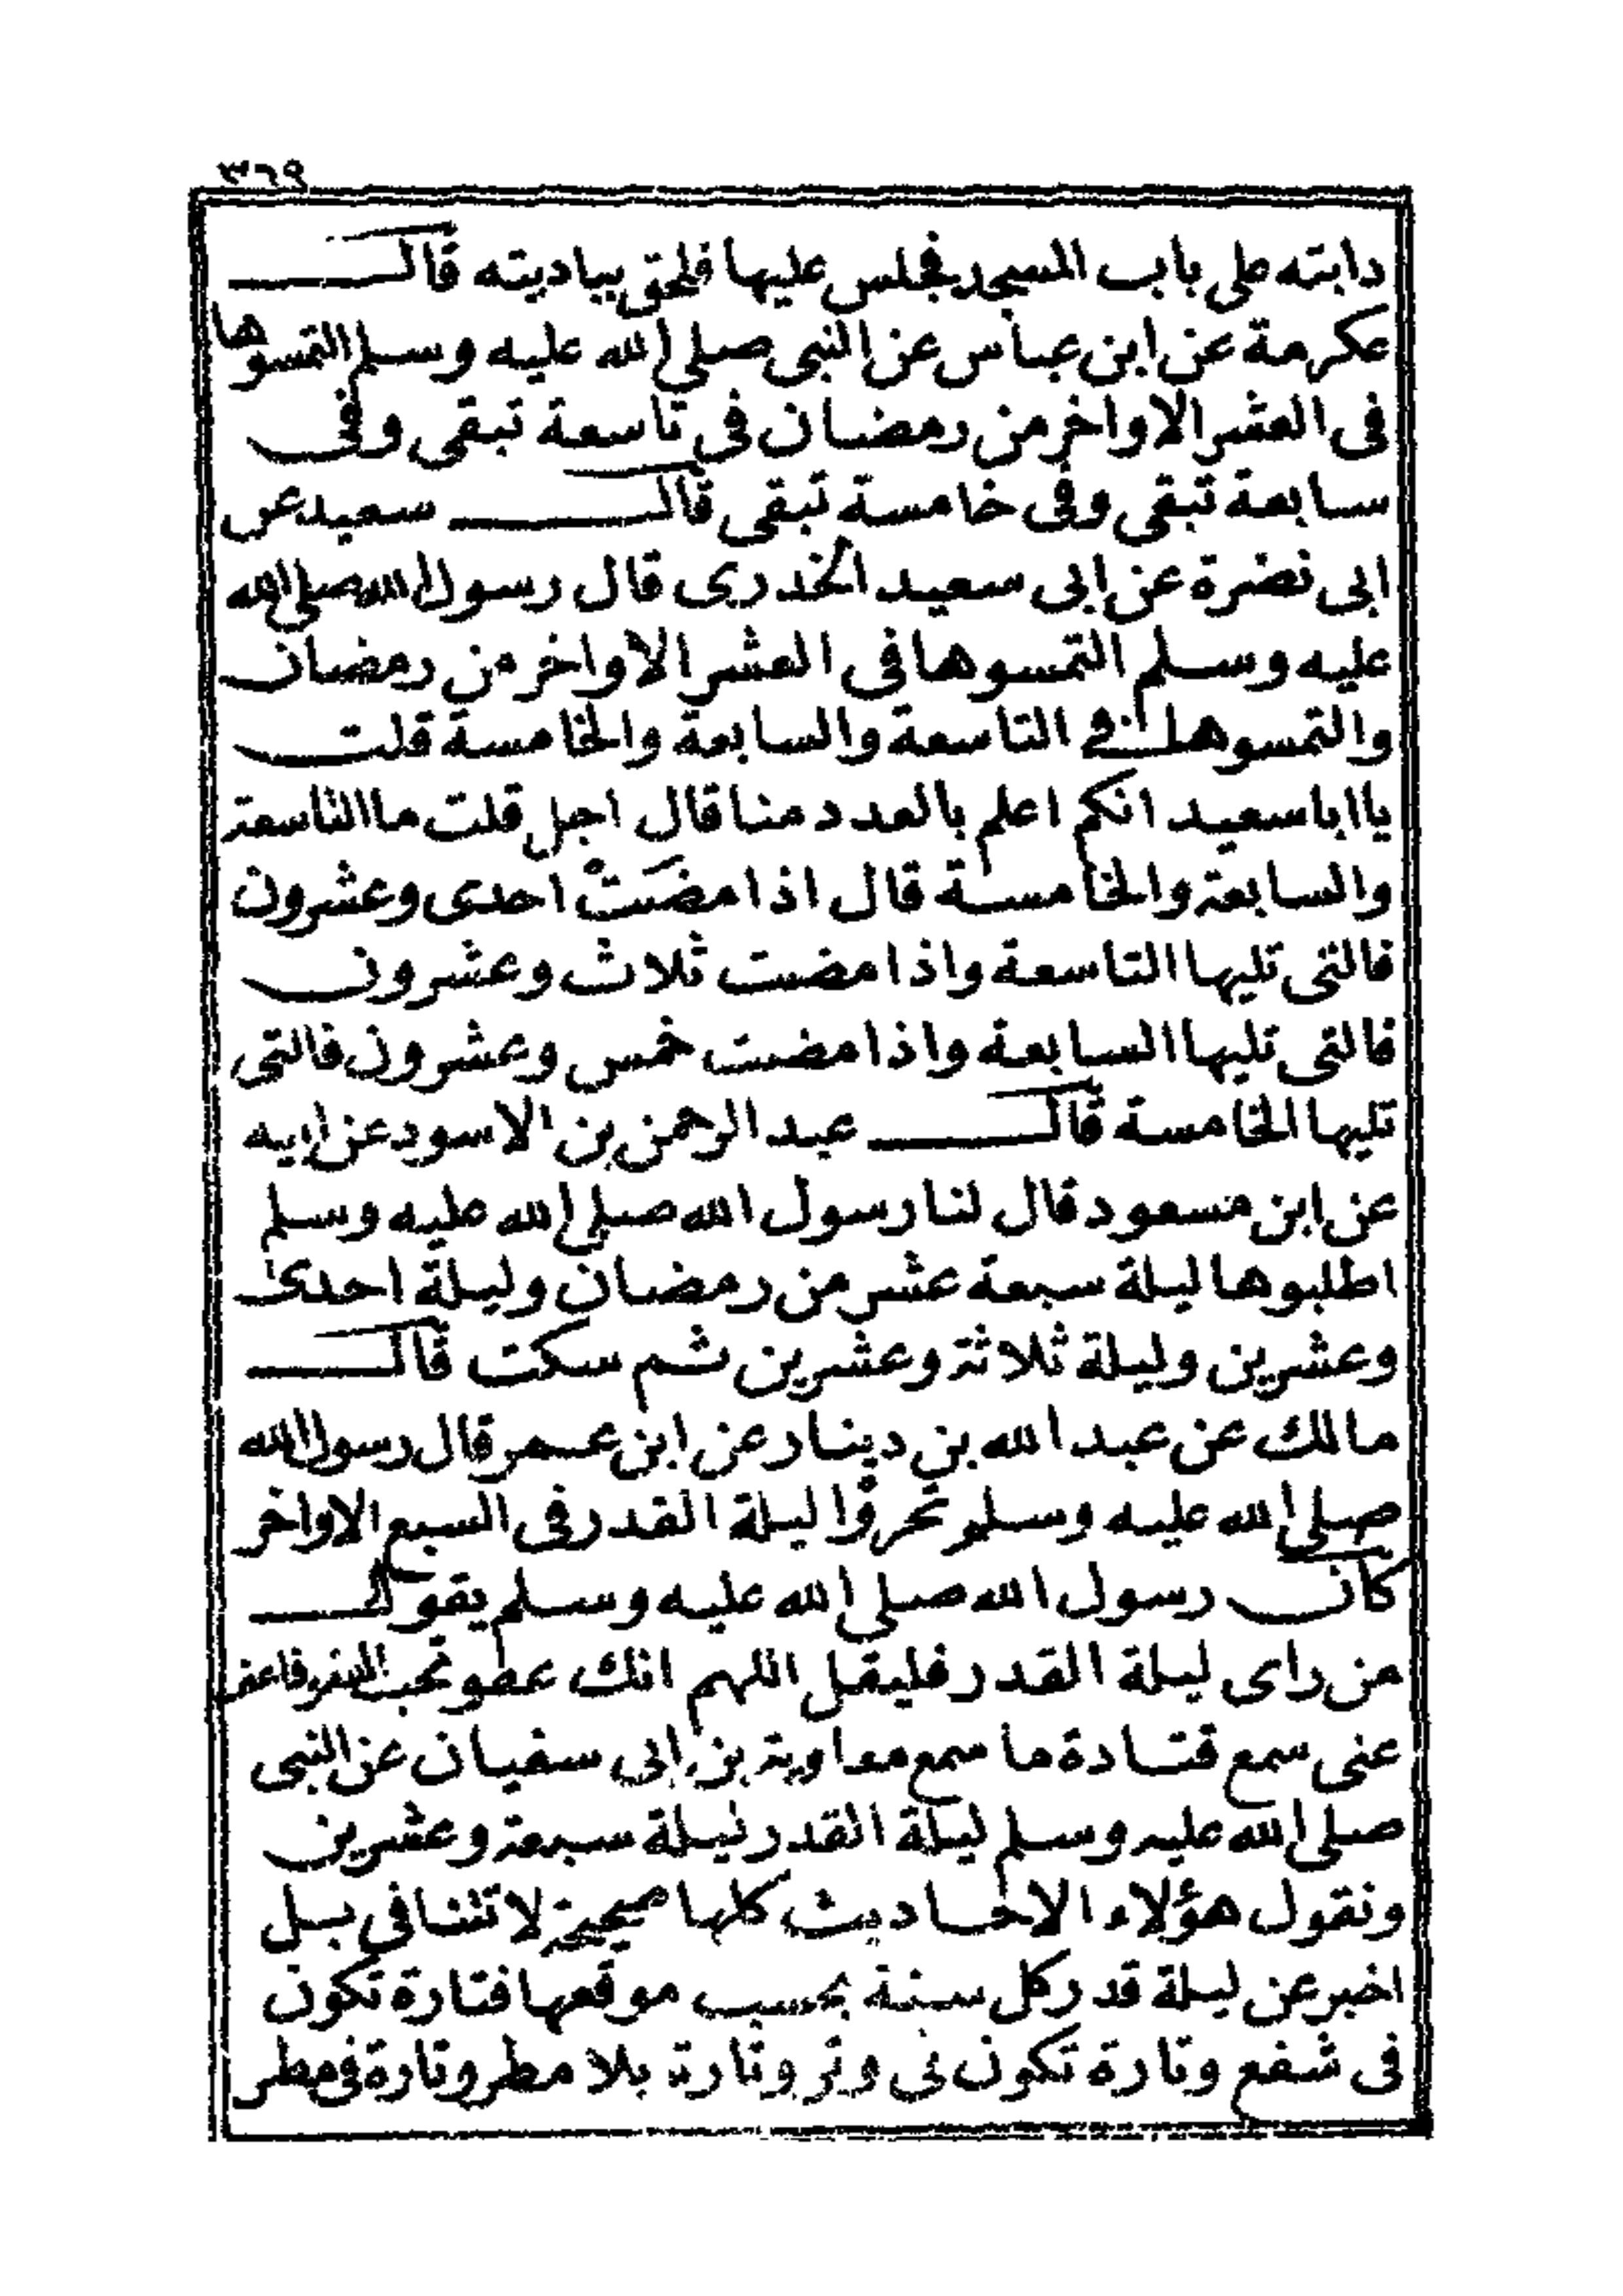 ٣٦٩
دابته على باب المسجد فجلس عليها فلحق بباديته قال
عكرمة عن ابن عباس عن النبى صلى الله عليه وسلم التمسوها
فى العشر الاواخر من رمضان فى تاسعة تبقى وفى
سابعة تبقى وفى خامسة تبقى قال سعيد عن
ابى نضرة عن ابى سعيد الخدرى قال رسول الله صلى الله
عليه وسلم التمسوها فى العشر الاواخر من رمضان
والتمسوها فى التاسعة والسابعة والخامسة قلت
يا ابا سعيد انكم اعلم بالعدد منا قال اجل قلت ما التاسعة
والسابعة والخامسة قال اذا مضَتْ احدى وعشرون
فالتى تليها التاسعة واذا مضت ثلاث وعشرون
فالتى تليها السابعة واذا مضت خمس وعشرون فالتى
تليها الخامسة قال عبد الرحمن بن الاسود عن ابيه
عن ابن مسعود قال لنا رسول الله صلى الله عليه وسلم
اطلبوها ليلة سبعة عشر من رمضان وليلة احدى
وعشرين وليلة ثلاثة وعشرين ثم سكت قال
مالك عن عبد الله بن دينار عن ابن عمر قال رسول الله
صلى الله عليه وسلم تحروا ليلة القدر فى السبع الاواخر
كان رسول الله صلى الله عليه وسلم يقول
من راى ليلة القدر فليقل اللهم انك عفو تحب العفو فاعف
عنى سمع قتادة ما سمع معاوية بن ابى سفيان عن النبى
صلى الله عليه وسلم ليلة القدر ليلة سبعة وعشرين
ونقول هؤلاء الاحاديث كلها صحيحة لا تتنافى بل
اخبر عن ليلة قدر كل سنة بحسب موقعها فتارة تكون
فى شفع وتارة تكون فى وتر وتارة بلا مطر وتارة فى مطر